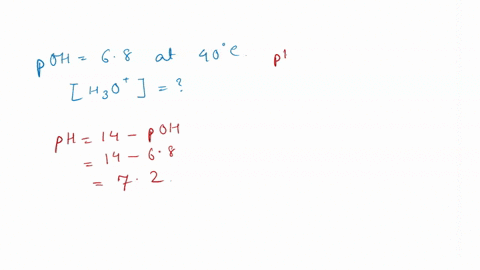 pOH = 6.8 at 40°C.
[H₃O⁺] = ?
pH = 14 - pOH
= 14 - 6.8
= 7.2.